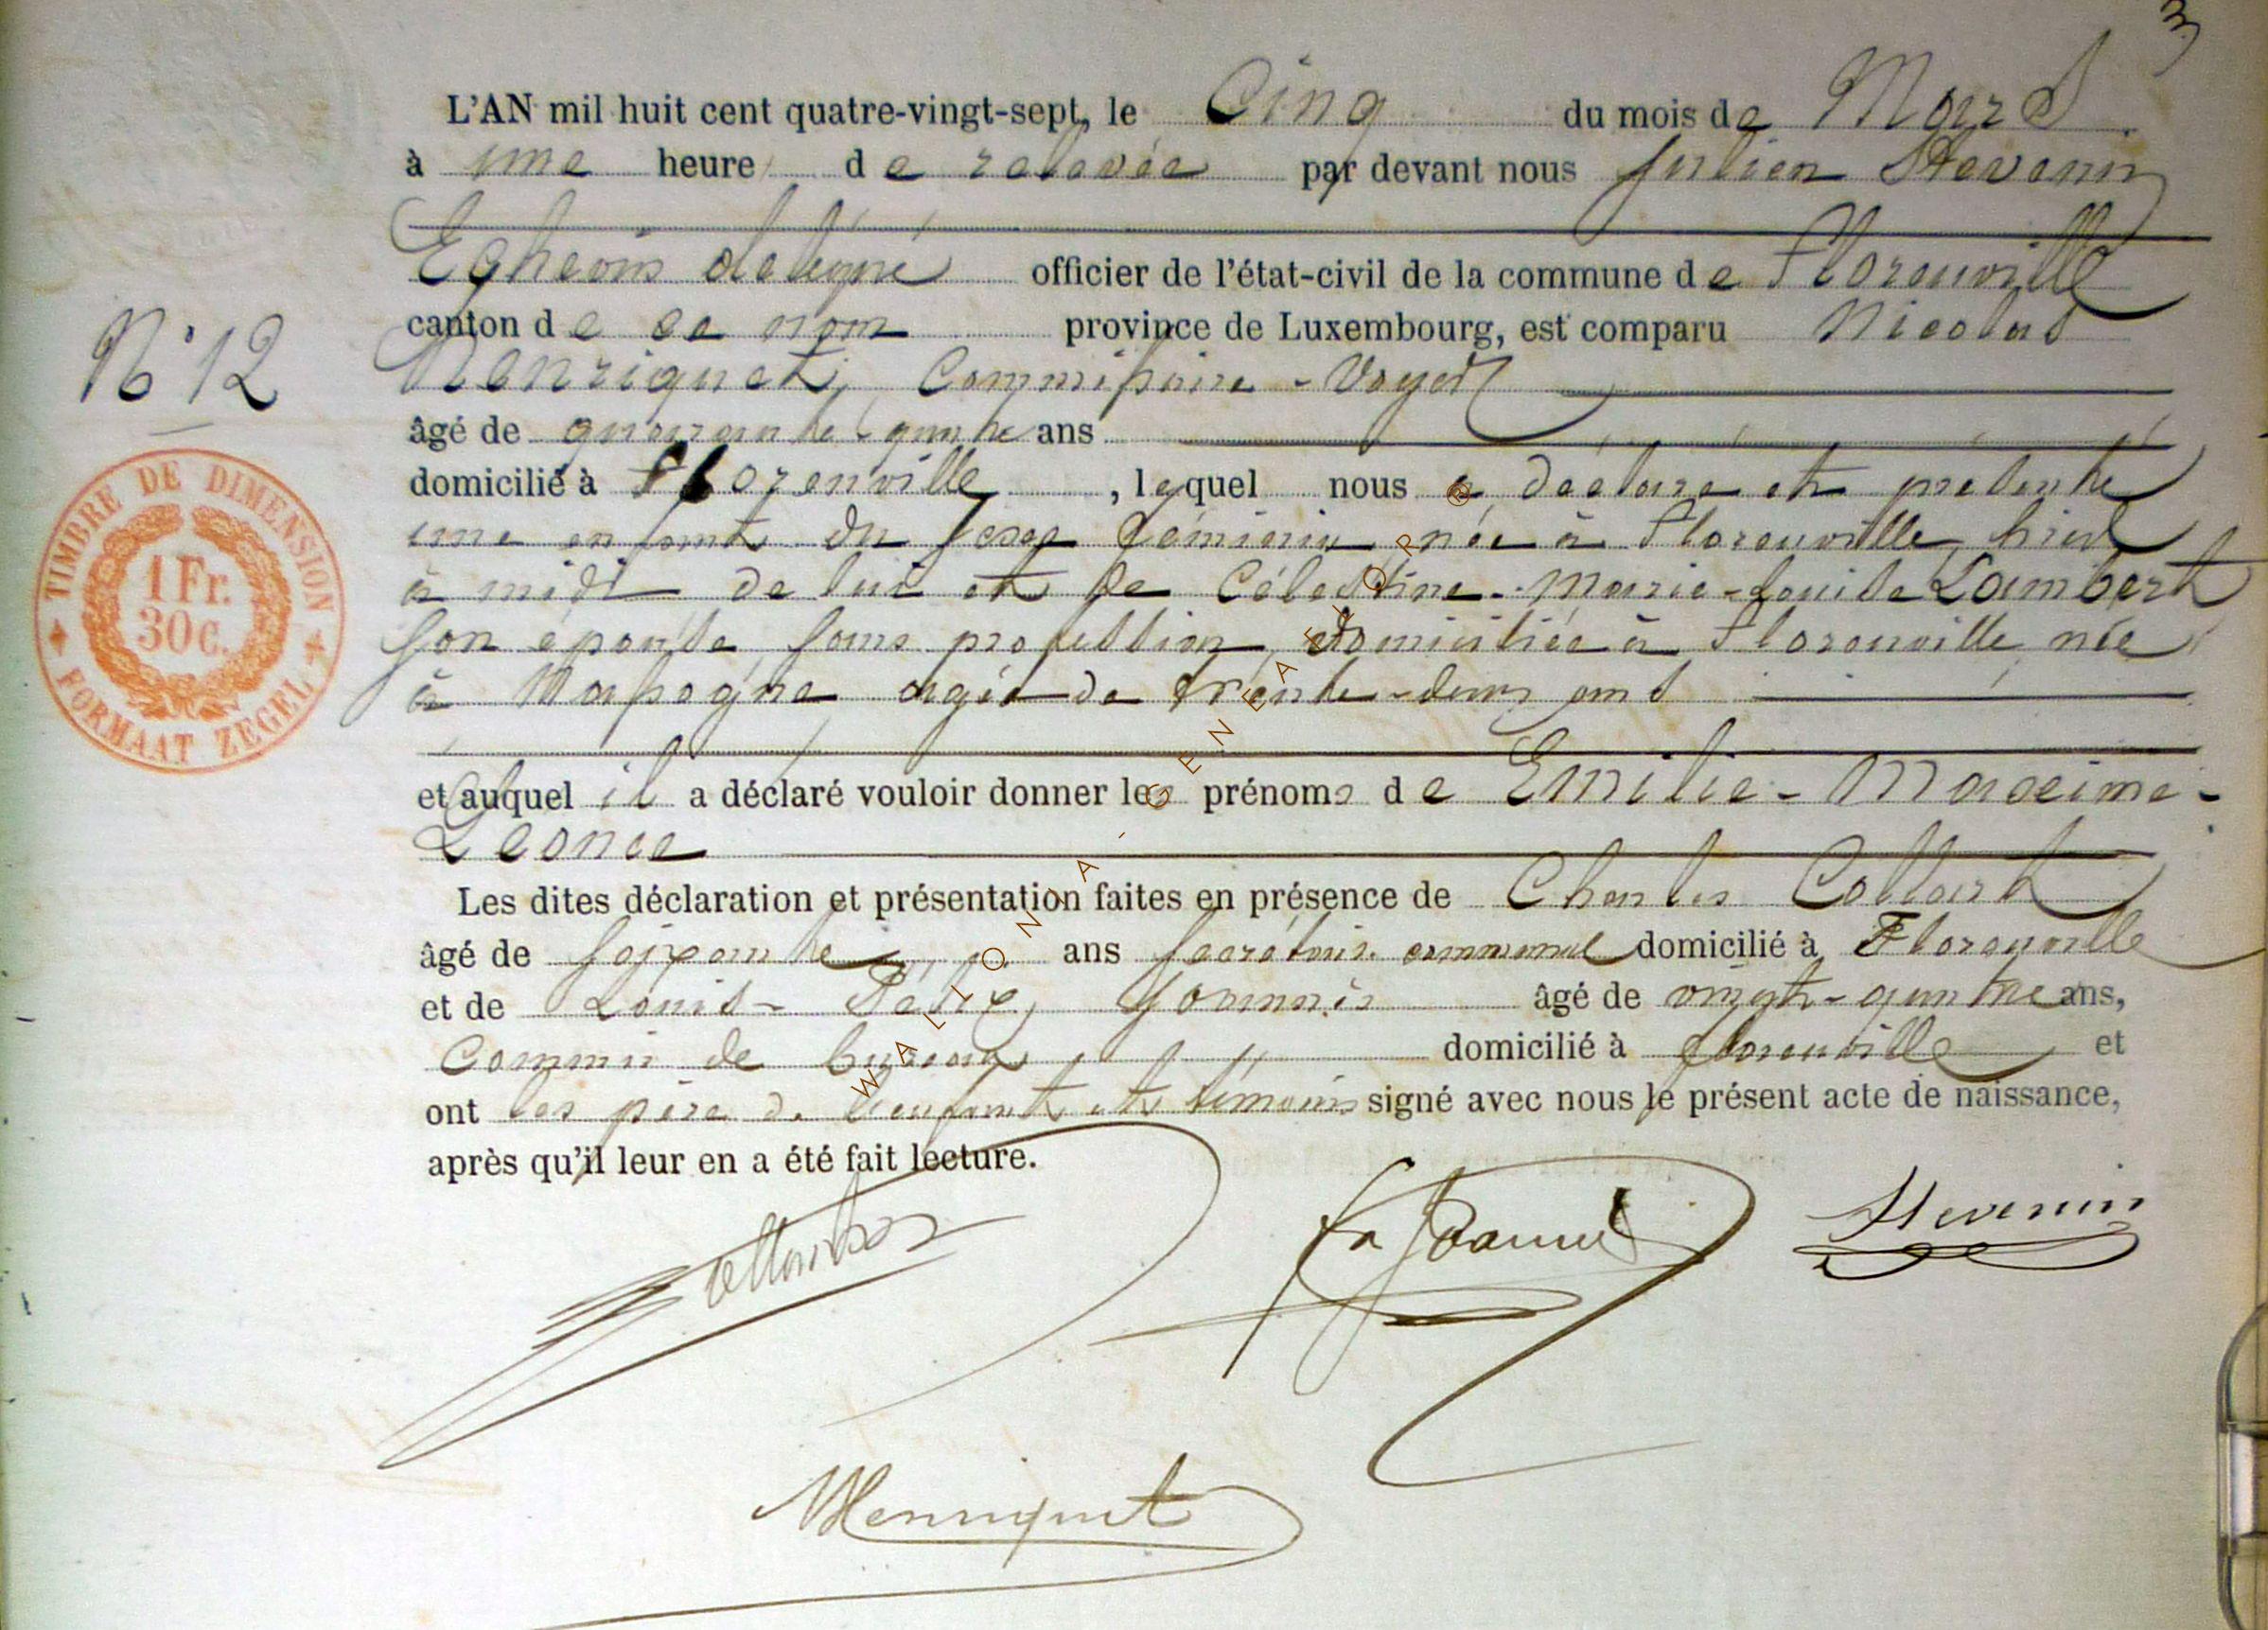 3
L'AN mil huit cent quatre-vingt-sept, le Cinq du mois de Mars
à une heure de relevée par devant nous Julien Stevenin
Echevin délégué officier de l'état-civil de la commune de Florenville
canton de ce nom province de Luxembourg, est comparu Nicolas
N° 12
Henriquet, Commissaire-Voyer
âgé de quarante-quatre ans
domicilié à Florenville, lequel nous a déclaré et présenté
une enfant du sexe féminin née à Florenville, hier
à midi de lui et de Célestine-Marie-Louise Lambert
son épouse, sans profession, domiciliée à Florenville née
à agée de trente-deux ans
et auquel il a déclaré vouloir donner les prénoms de Emilie-Maxime-
Léonce
Les dites déclaration et présentation faites en présence de Charles Collart
âgé de soixante ans secrétaire communal domicilié à Florenville
et de Louis-Félix, âgé de vingt-quatre ans,
Commis de bureau domicilié à Florenville et
ont les père de l'enfant et témoins signé avec nous le présent acte de naissance,
après qu'il leur en a été fait lecture.
Stevenin
Henriquet
TIMBRE DE DIMENSION
1 Fr.
30 c.
FORMAAT ZEGEL
WALLONIA - GENEAFLOR ®